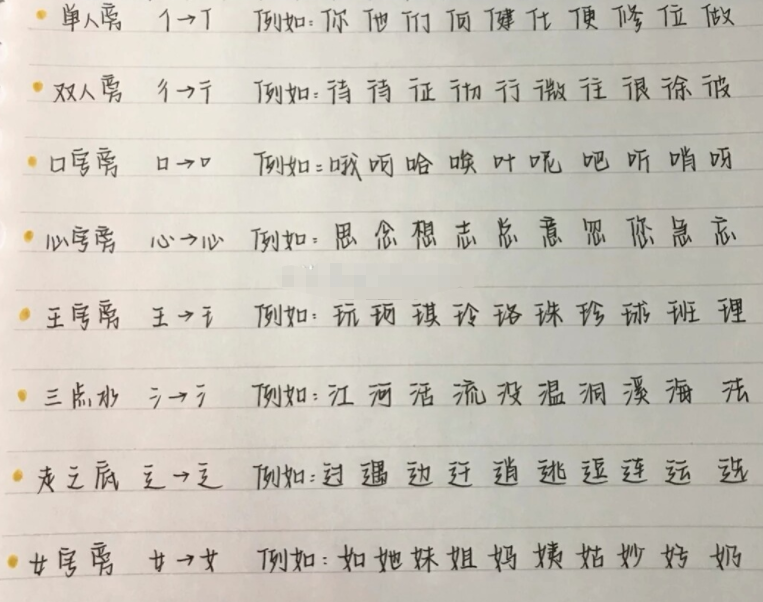 单人旁 亻→亻 例如:你 他 们 何 健 仕 便 修 位 做
双人旁 彳→彳 例如:待 待 征 彻 行 微 往 很 徐 彼
口字旁 口→口 例如:哦 呵 哈 唉 叶 呢 吧 听 哨 呀
心字旁 心→心 例如:思 念 想 志 总 意 忽 您 急 忘
王字旁 王→王 例如:玩 珂 琪 玲 珞 珠 珍 球 班 理
三点水 氵→氵 例如:江 河 活 流 没 温 洞 溪 海 法
走之底 辶→辶 例如:过 遇 边 迁 逍 逃 逗 连 运 选
女字旁 女→女 例如:如 她 妹 姐 妈 姨 姑 妙 奶